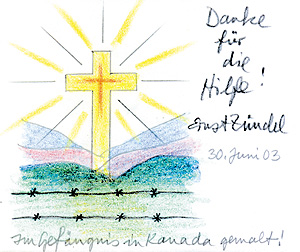 Danke
für
die
Hilfe!
Ernst Zündel
30. Juni 03
Im Gefängnis in Kanada gemalt!